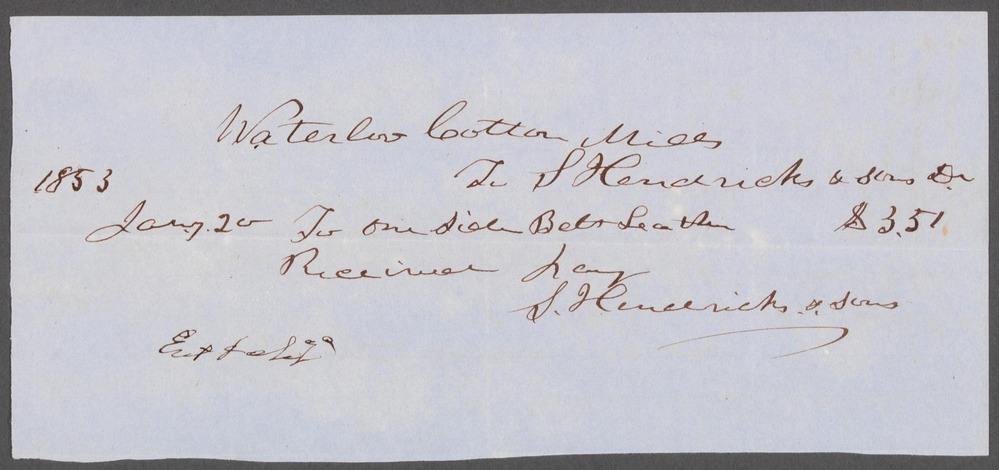 Waterloo Cotton Mills
1853 To S Hendricks & sons Dr
Jany. 20 To one side Belt Leather $3.51
Received pay
S. Hendricks & sons